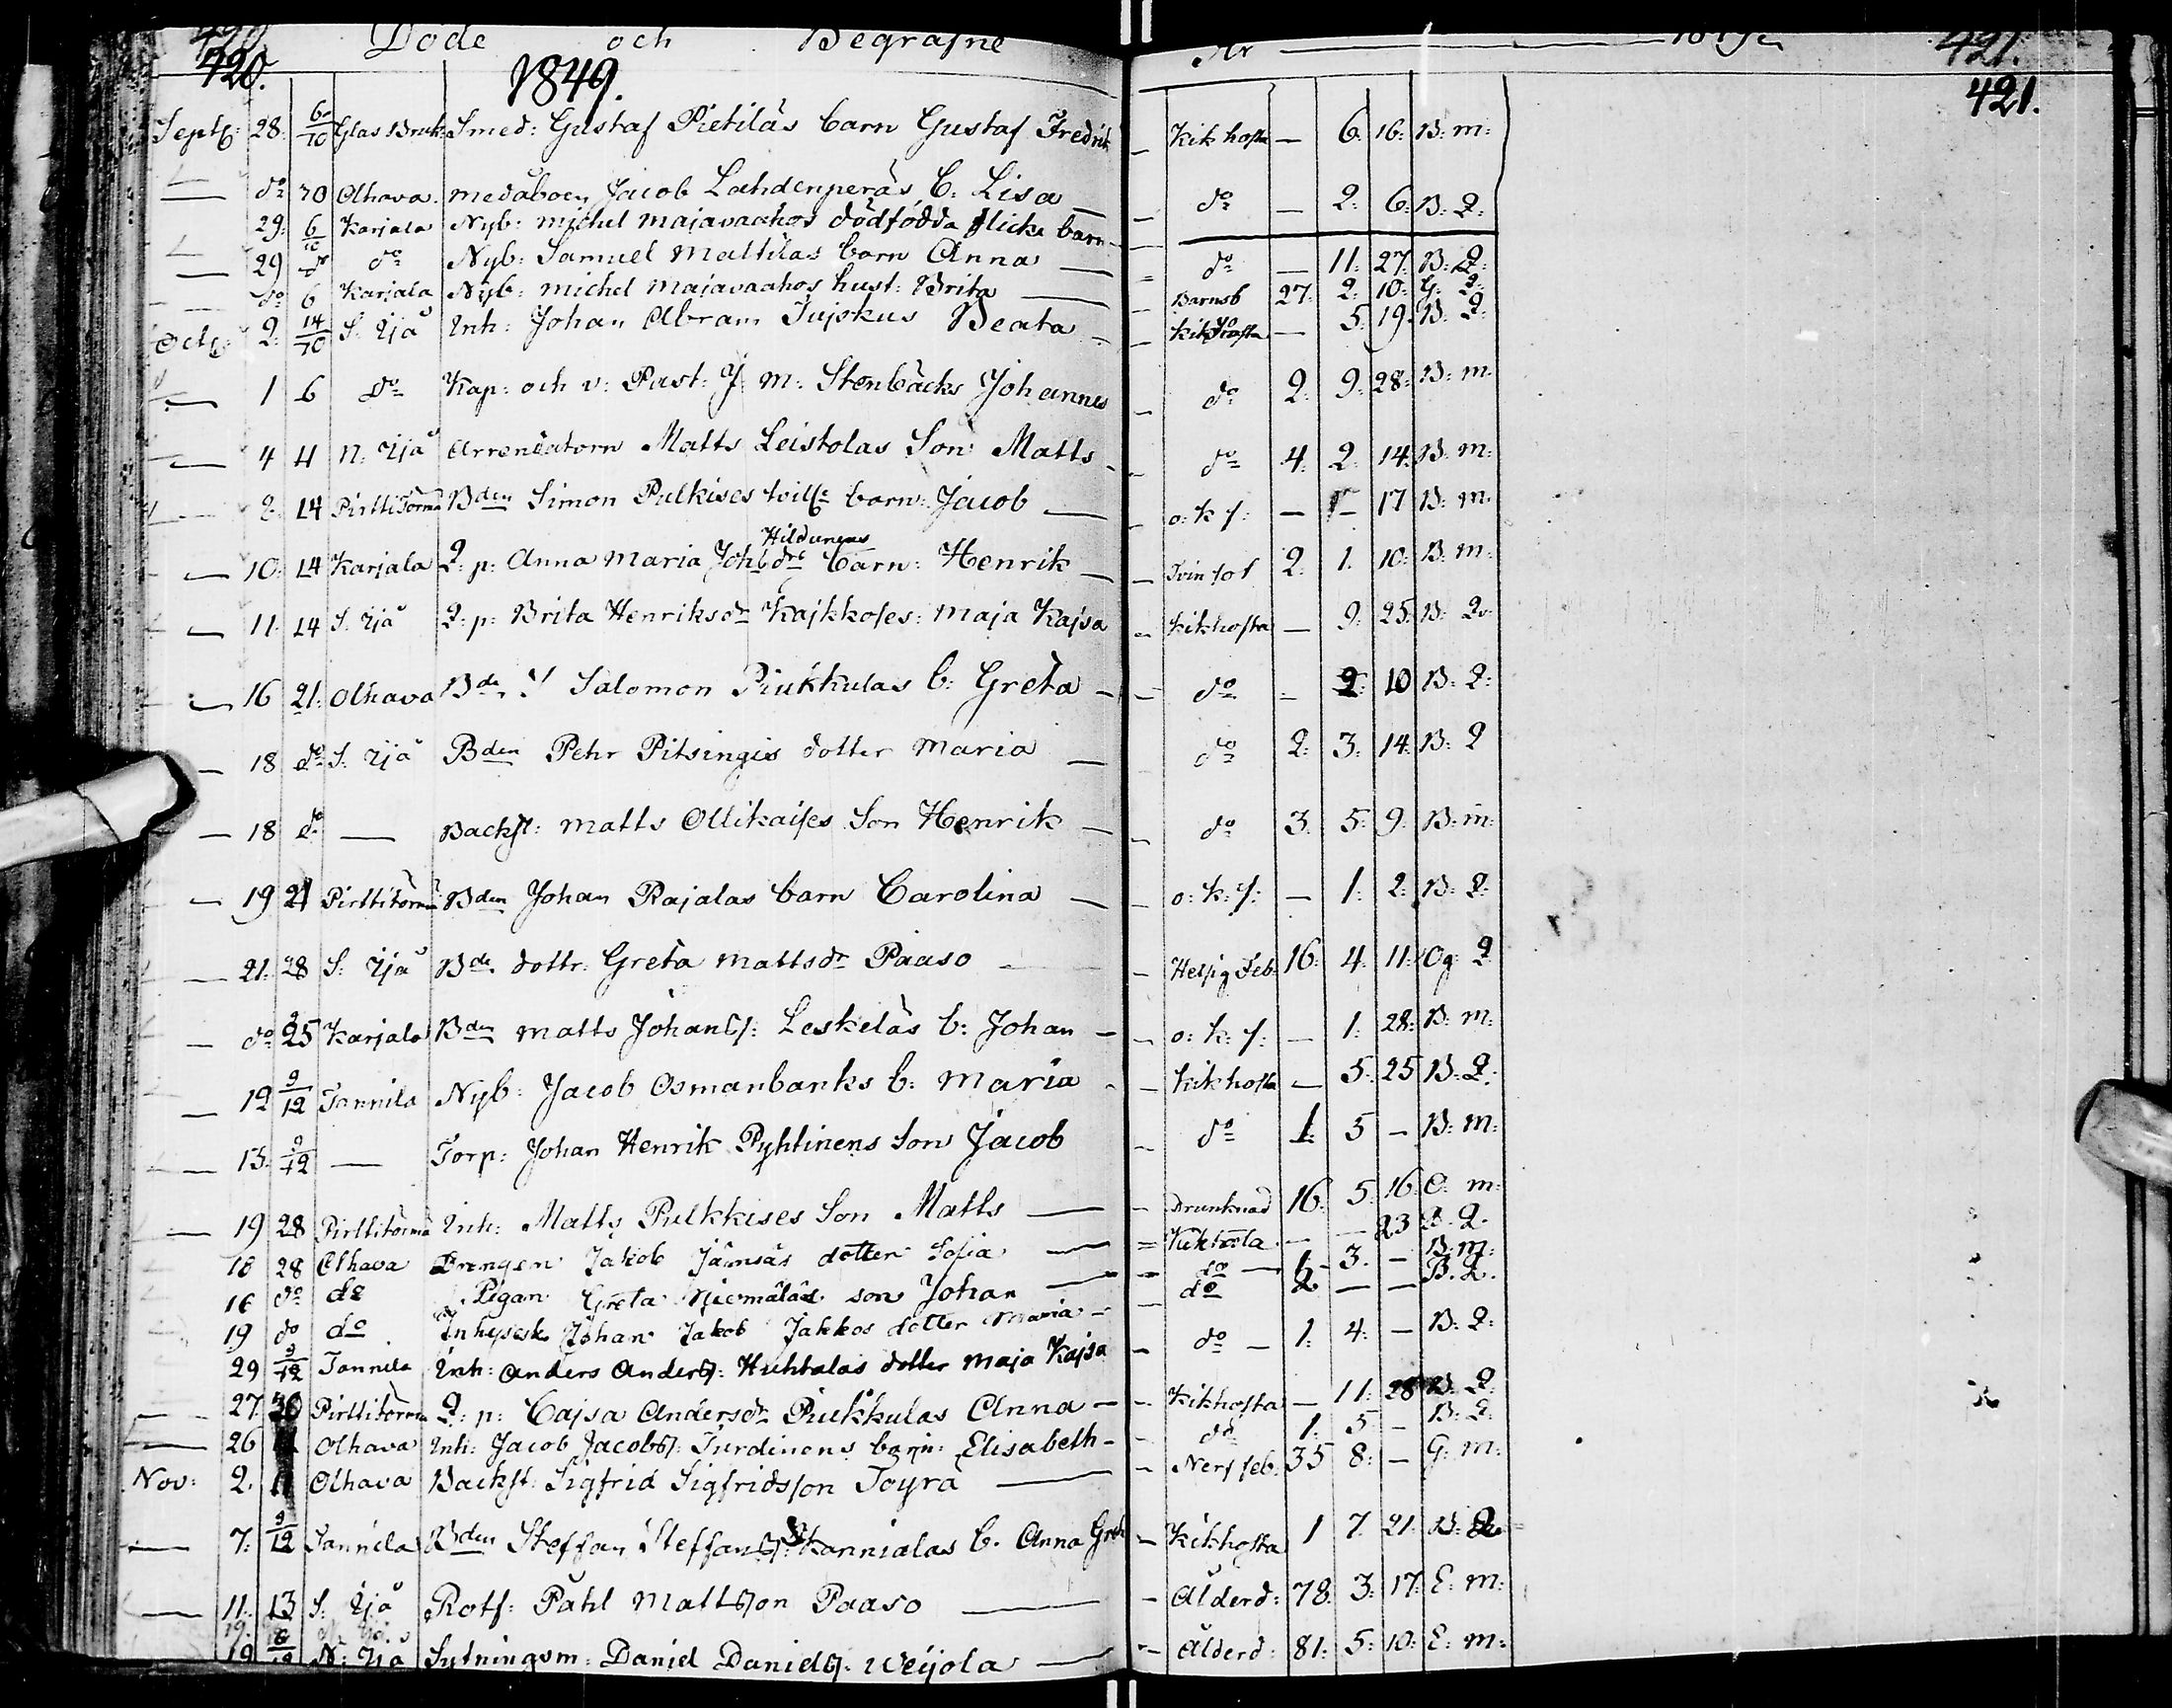 420.
Döde och Begrafne År 1849.
420. 1849.
421.
421.
Septb: 28. 6/10 Glas Bruk Smed: Gustaf Pietiläs barn Gustaf Fredrik — Kikhosta — 6. 16: B: m:
— do 70 Olhava. medåboen Jacob Lahdenperäs b: Lisa — do — 2: 6: B: Q:
29: 6/10 Karjala Nyb: michel majavaahos dödfödda flicke barn —
— 29 do do Nyb: Samuel Mattilas barn Anna — do — 11: 27: B: Q:
— do 6 Karjala Nyb: michel majavaahos hust: Brita — Barnsb 27: 2: 10: G: Q:
Octb: 2: 14/10 S: Ijå Inh: Johan Abram Jujskus Beata — Kikhosta — 5: 19: B: Q:
— 1 6 do Kap: och v: Past: J: M: Stenbäcks Johannes — do 2: 9: 28: B: m:
— 4 11 N: Ijå Arrendatorn Matts Leistolas Son Matts — do 4: 2: 14: B: m:
— 2 14 Pirttitörmä Bden Simon Pulkises barn: Jacob — o: k: s: — — 17 B: m:
Hildunens
— 10: 14 Karjala Q: p: Anna Maria Johsdr barn: Henrik — Tvin sot 2: 1. 10: B: m:
— 11. 14 S: Ijå Q: p: Brita Henriksdr Kajkkoses: Maja Kajsa — Kikhosta — 9: 25: B: Q:
— 16 21: Olhava Bden Salomon Piukkulas b: Greta — do — 2: 10 B: Q:
— 18 do S: Ijå Bden Pehr Pitsingis dotter Maria — do 2: 3: 14: B: Q
— 18 do — Backst: Matts Ollikaises Son Henrik — do 3. 5: 9: B: m:
— 19 21 Pirttitörmä Bden Johan Rajalas barn Carolina — o: k: s: — 1: 2: B: Q:
— 21: 28 S: Ijå Bde dottr: Greta Mattsdr Paaso — Hetsig Feb: 16: 4: 11: Og: Q
— do 25 Karjala Bden Matts Johans: Leskeläs b: Johan — o: k: s: — 1: 28: B: m:
— 12 9/12 Tannila Nyb: Jacob Osmanbanks b: Maria — Kikhosta — 5: 25 B: Q:
— 15: 9/12 — Torp: Johan Henrik Pyhtinens Son Jacob — do 1: 5 — B: m:
— 19 28 Pirttitörmä Inh: Matts Pulkkises Son Matts — Drunknad 16: 5: 16: O: m:
18 28 Olhava Drengen Jakob Jämsäs dotter Sofia — Kikhosta — — 23 B: Q:
16 do do Pigan Greta Niemäläs son Johan — do 1. 3. — B: m:
19 do do Inhysesk: Johan Jakob Jakkos dotter Maria — do 2 — — B. Q.
29 9/12 Tannila Inh: Anders Anders: Huhtalas dotter Maja Kajsa — do — 1: 4: — B: Q:
— 27 30 Pirttitörmä Q: p: Cajsa Andersdr Piukkulas Anna — Kikhosta — 11: 28 B: Q:
— 26 11 Olhava Inh: Jacob Jacobs: Turdinens barn: Elisabeth — do 1: 5 — B: Q:
Nov: 2. 11 Olhava Backst: Sigfrid Sigfridsson Töyrä — Nerf feb: 35 8: — G: m:
— 7: 9/12 Tannila Bden Steffan Steffans: Kannialas b. Anna Greta — Kikhosta 1 7. 21: B: Q:
— 11: 13 S: Ijå Rotf: Påhl Mattsson Paaso — Ålderd: 78: 3: 17: E: m:
19 6/12 N: Ijå Sytningsm: Daniel Daniels: Weijola — Ålderd: 81: 5: 10: E: m: